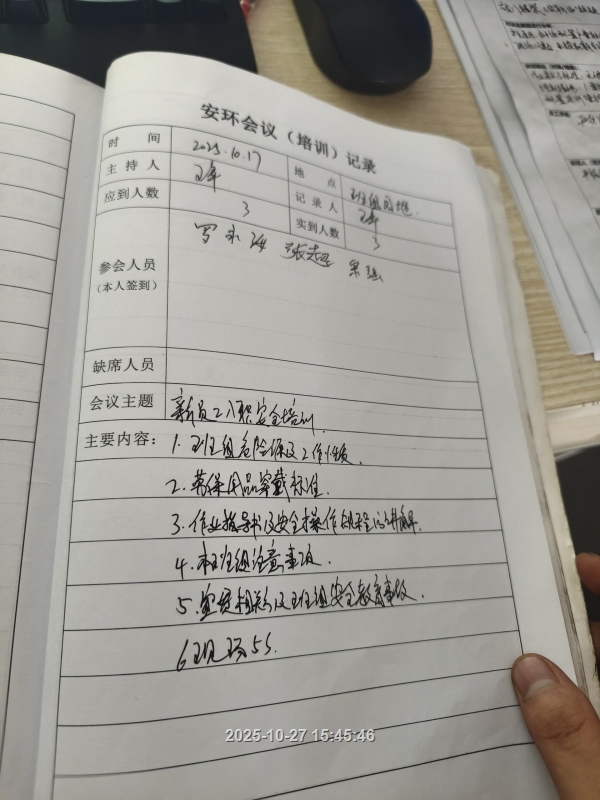 安环会议（培训）记录
时 间 2025.10.17 地 点 班组园地.
主持人 记录人
应到人数 3 实到人数 3
参会人员
（本人签到）
缺席人员
会议主题 新员工入职安全培训.
主要内容： 1. 班组危险源及工作性质.
2. 劳保用品穿戴标准.
3. 作业指导书及安全操作规程的讲解.
4. 本班组注意事项.
5. 宣贯相关及班组安全教育事项.
6 现场5S.
2025-10-27 15:45:46